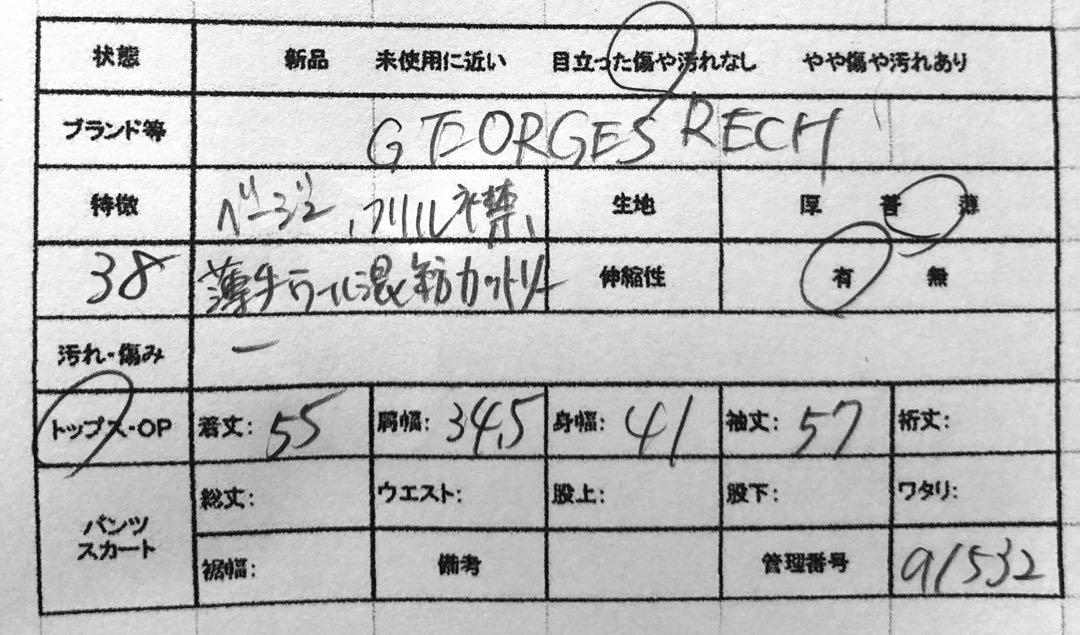 状態 新品 未使用に近い 目立った傷や汚れなし やや傷や汚れあり
ブランド等 GEORGES RECH
特徴 ベージュ、フリル襟、 生地 厚 普 薄
38 薄手ウール混長袖カットソー 伸縮性 有 無
汚れ・傷み ー
トップス・OP 着丈: 55 肩幅: 34.5 身幅: 41 袖丈: 57 裄丈:
パンツ スカート
総丈: ウエスト: 股上: 股下: ワタリ:
裾幅: 備考 管理番号 91532